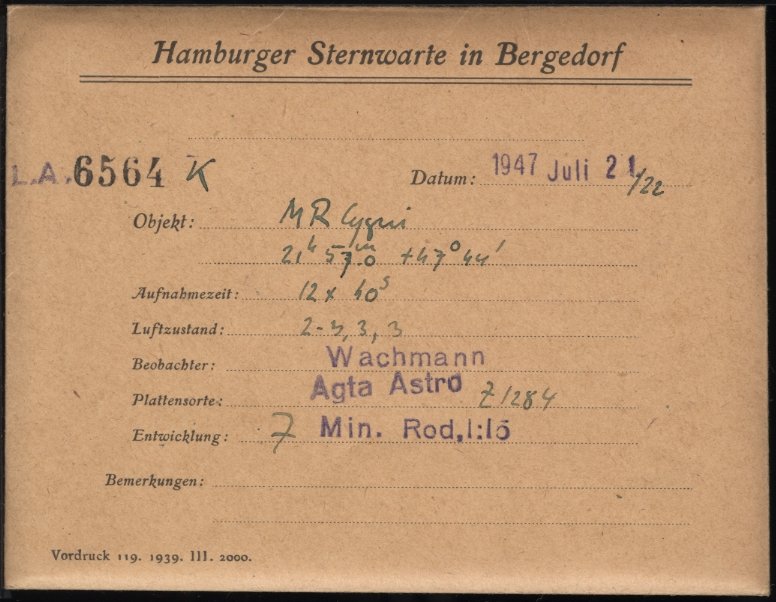 Hamburger Sternwarte in Bergedorf
L.A. 6564 K
Datum: 1947 Juli 21/22
Objekt: MR Cygni
21h 57m.0 +47° 44'
Aufnahmezeit: 12 x 40s
Luftzustand: 2-3, 3, 3
Beobachter: Wachmann
Plattensorte: Agfa Astro Z1284
Entwicklung: 7 Min. Rod. 1:15
Bemerkungen:
Vordruck 119. 1939. III. 2000.